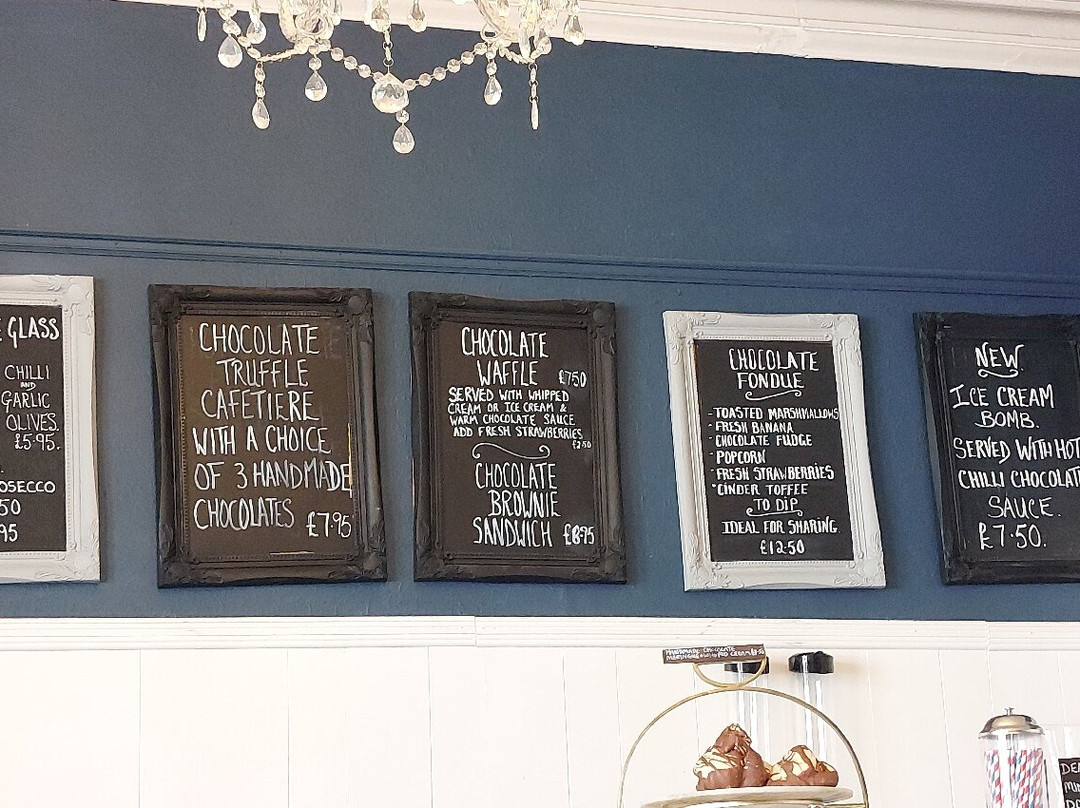 GLASS
CHILLI
AND
GARLIC
OLIVES.
£5.95.
CHOCOLATE
TRUFFLE
CAFETIERE
WITH A CHOICE
OF 3 HANDMADE
CHOCOLATES £7.95
CHOCOLATE
WAFFLE £7.50
SERVED WITH WHIPPED
CREAM OR ICE CREAM &
WARM CHOCOLATE SAUCE
ADD FRESH STRAWBERRIES
£2.50
CHOCOLATE
BROWNIE
SANDWICH £8.75
CHOCOLATE
FONDUE
- TOASTED MARSHMALLOWS
- FRESH BANANA
- CHOCOLATE FUDGE
- POPCORN
- FRESH STRAWBERRIES
- CINDER TOFFEE
TO DIP
IDEAL FOR SHARING.
£12.50
NEW.
ICE CREAM
BOMB.
SERVED WITH HOT
CHILLI CHOCOLATE
SAUCE.
£7.50.
HANDMADE CHOCOLATE